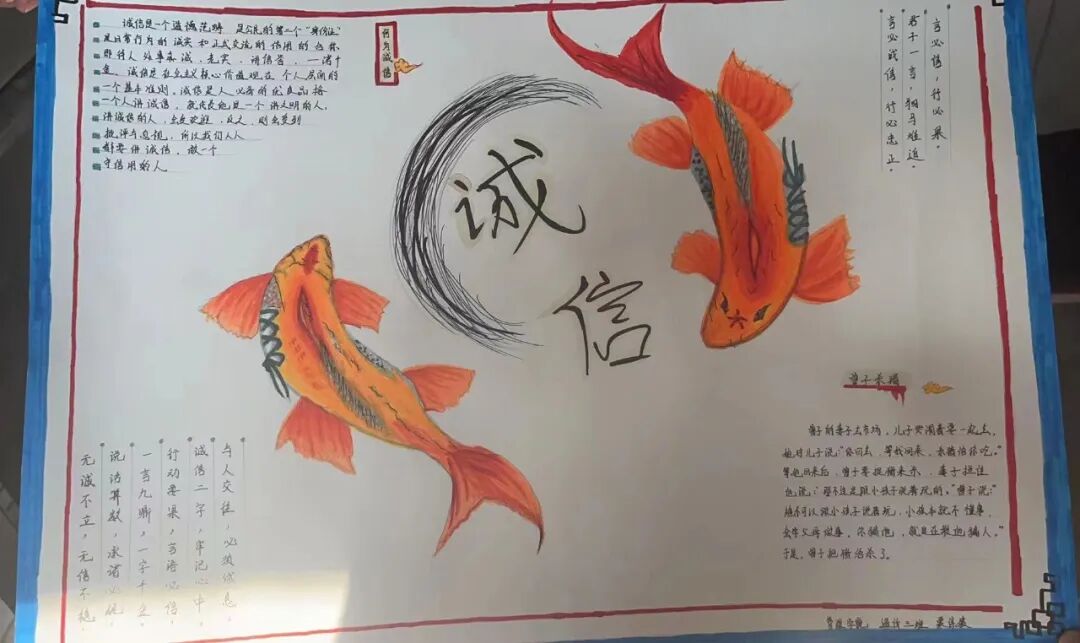 何为诚信
诚信是一个道德范畴 是公民的第二个“身份证”
是日常行为的诚实和正式交流的信用的合称
即待人处事真诚、老实、讲信誉、一诺千
金。诚信是社会主义核心价值观在个人层面的
一个基本准则。诚信是人必备的优良品格
一个人讲诚信,就代表他是一个讲文明的人,
讲诚信的人,处处欢迎,反之,则会受到
批评与忽视,所以我们人人
都要讲诚信,做一个
守信用的人
诚
信
言必信,行必果。
君子一言,驷马难追。
言必诚信,行必忠正。
曾子杀猪
曾子的妻子去市场,儿子哭闹着要一起去,
她对儿子说:“你回去,等我回来,杀猪给你吃。”
等她回来后,曾子要捉猪来杀,妻子拦住
他说:“那不过是跟小孩子说着玩的。”曾子说:“
绝不可以跟小孩子说着玩,小孩本就不懂事,
会学父母做事,你骗他,就是在教他骗人。”
于是,曾子把猪给杀了。
与人交往,必须诚恳。
诚信二字,牢记心中。
行动要果,言语必信。
一言九鼎,一字千金。
说话算数,承诺必促。
无诚不立,无信不稳。